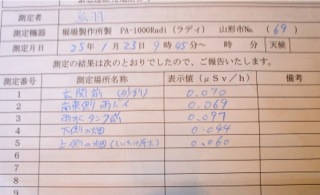 測定者
測定機器 堀場製作所製 PA-1000Radi（ラディ） 山形市№（69）
測定月日 25年1月23日9時45分～ 時 分 天候
測定の結果は次のとおりでしたので、ご報告いたします。
測定番号 測定場所名称 表示値（μSv/h） 備考
1 玄関前 0.070
2 南東側 雨トイ 0.069
3 雨水タンク前 0.097
4 下側の畑 0.044
5 上側の畑 0.060
6
7
8
9